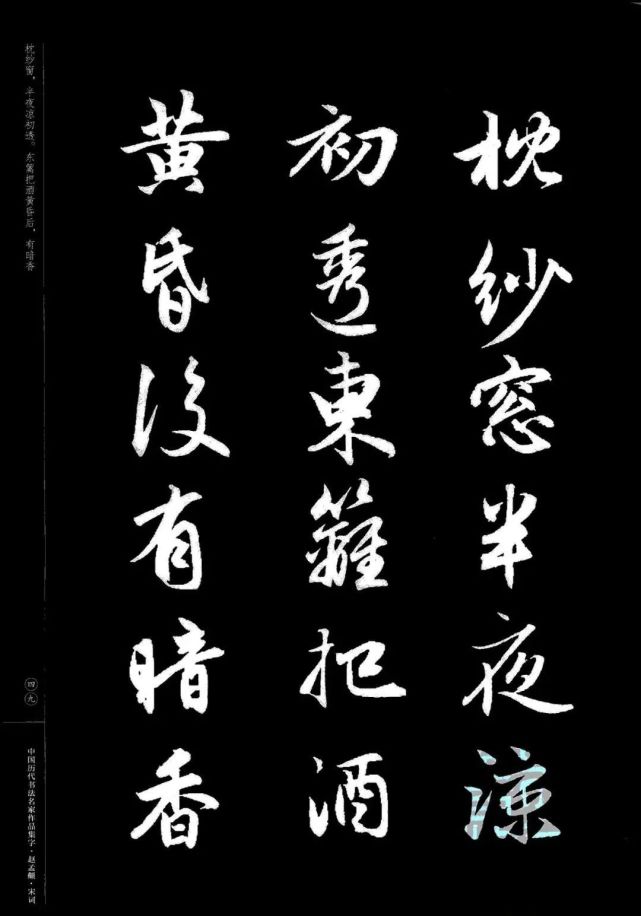 枕纱窗半夜凉
初透東籬把酒
黄昏後有暗香
枕纱窗，半夜凉初透。东篱把酒黄昏后，有暗香
四九
中国历代书法名家作品集字·赵孟頫·宋词